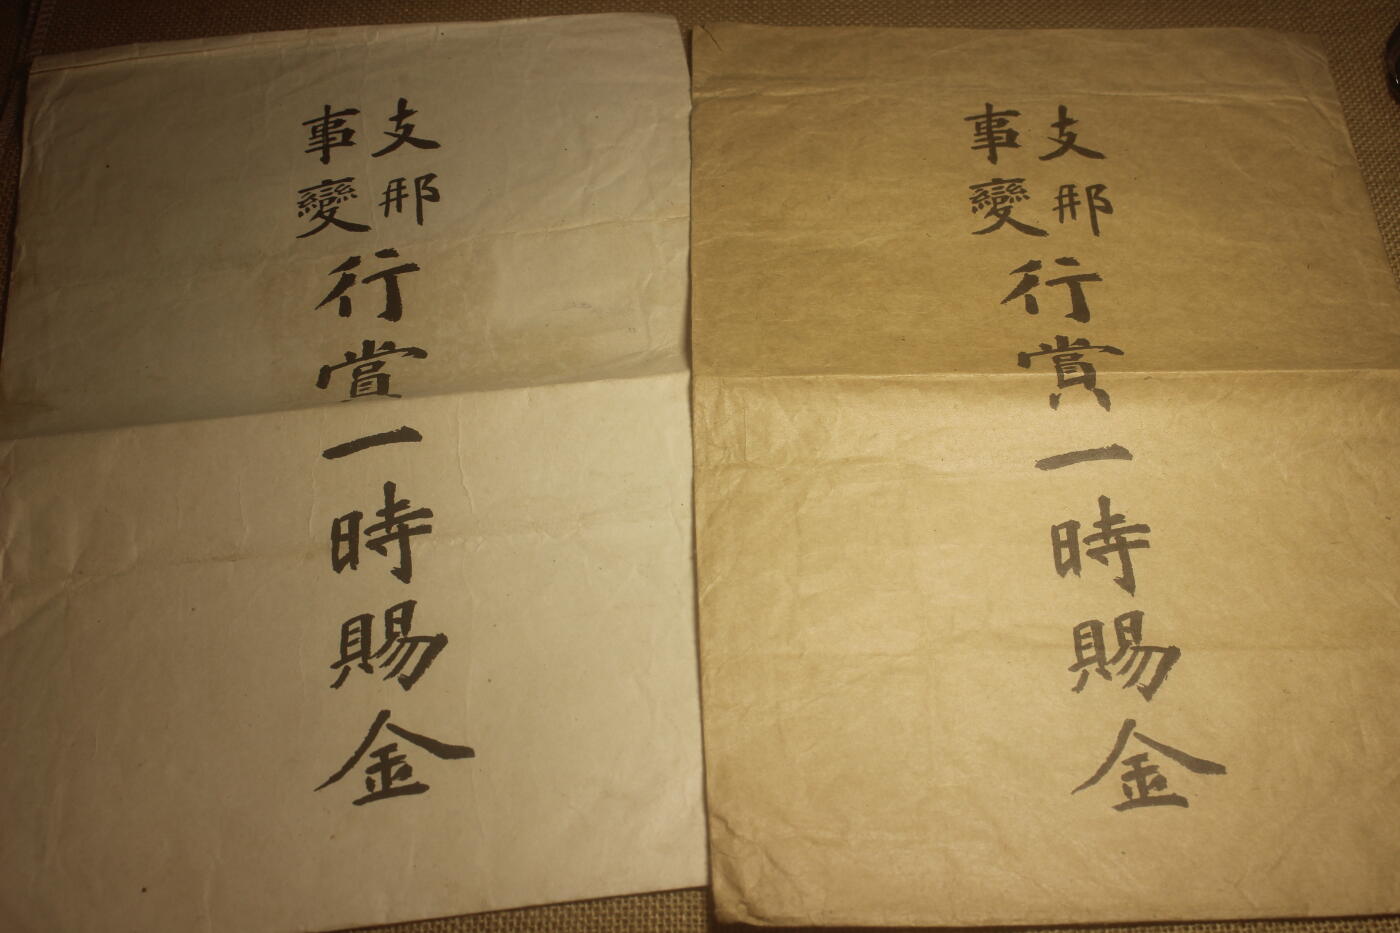 支那事變行賞一時賜金
支那事變行賞一時賜金